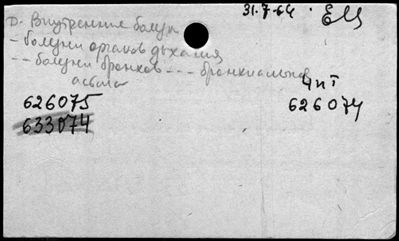 31.7.64 ЕЦ
D. Внутренние болезн
- болезни органов дыхания
-- болезни бронхов --- бронхиальная
астма
4пТ
626075
626074
633074